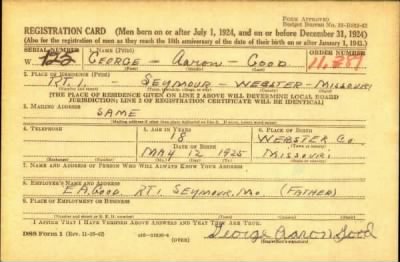 Form Approved
Budget Bureau No.
REGISTRATION CARD (Men born on or after July 1, 1924, and on or before December 31, 1924)
(Also for the registration of men as they reach the 18th anniversary of the date of their birth on or after January 1, 1943.)
SERIAL NUMBER 1. NAME (Print) ORDER NUMBER
GEORGE - Aaron - GOOD
(First) (Middle) (Last)
2. PLACE OF RESIDENCE (Print)
RT 1. - SEYMOUR - WEBSTER - MISSOURI
[THE PLACE OF RESIDENCE GIVEN ON LINE 2 ABOVE WILL DETERMINE LOCAL BOARD
JURISDICTION; LINE 2 OF REGISTRATION CERTIFICATE WILL BE IDENTICAL]
3. MAILING ADDRESS
SAME
4. TELEPHONE 5. AGE IN YEARS 6. PLACE OF BIRTH
18 WEBSTER CO.
DATE OF BIRTH
MAY 12 1925 MISSOURI
7. NAME AND ADDRESS OF PERSON WHO WILL ALWAYS KNOW YOUR ADDRESS
8. EMPLOYER'S NAME AND ADDRESS
E.A. GOOD. RT1. SEYMOUR, MO. (FATHER)
9. PLACE OF EMPLOYMENT OR BUSINESS
I AFFIRM THAT I HAVE VERIFIED ABOVE ANSWERS AND THAT THEY ARE TRUE.
DSS Form 1 (OVER) George Aaron Good